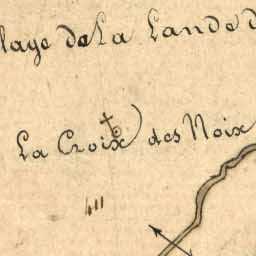 laye de La Lande d
La Croix des Noix
411